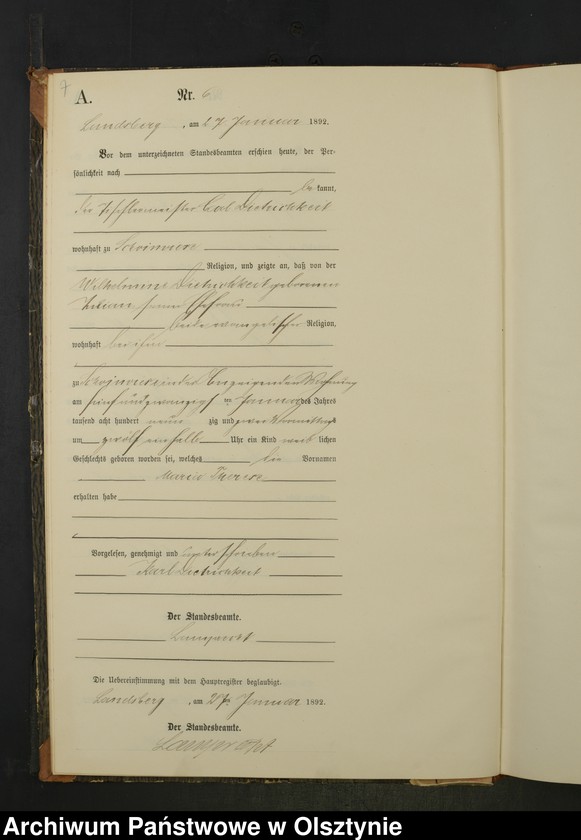 7
A.
Nr. 6
Landsberg, am 27 Januar 1892.
Vor dem unterzeichneten Standesbeamten erschien heute, der Per-
sönlichkeit nach
be kannt,
der Tischlermeister Carl
wohnhaft zu
Religion, und zeigte an, daß von der
Wilhelmine geborenen
seiner Ehefrau
beide evangelischer Religion,
wohnhaft bei ihm
zu in der Wohnung
am fünfundzwanzigsten Januar des Jahres
tausend acht hundert neun zig und zwei Vormittags
um zwölf einhalb Uhr ein Kind weib lichen
Geschlechts geboren worden sei, welches die Vornamen
Marie Therese
erhalten habe
Vorgelesen, genehmigt und unterschrieben
Karl
Der Standesbeamte.
Die Uebereinstimmung mit dem Hauptregister beglaubigt.
Landsberg, am 27 Januar 1892.
Der Standesbeamte.
Archiwum Państwowe w Olsztynie